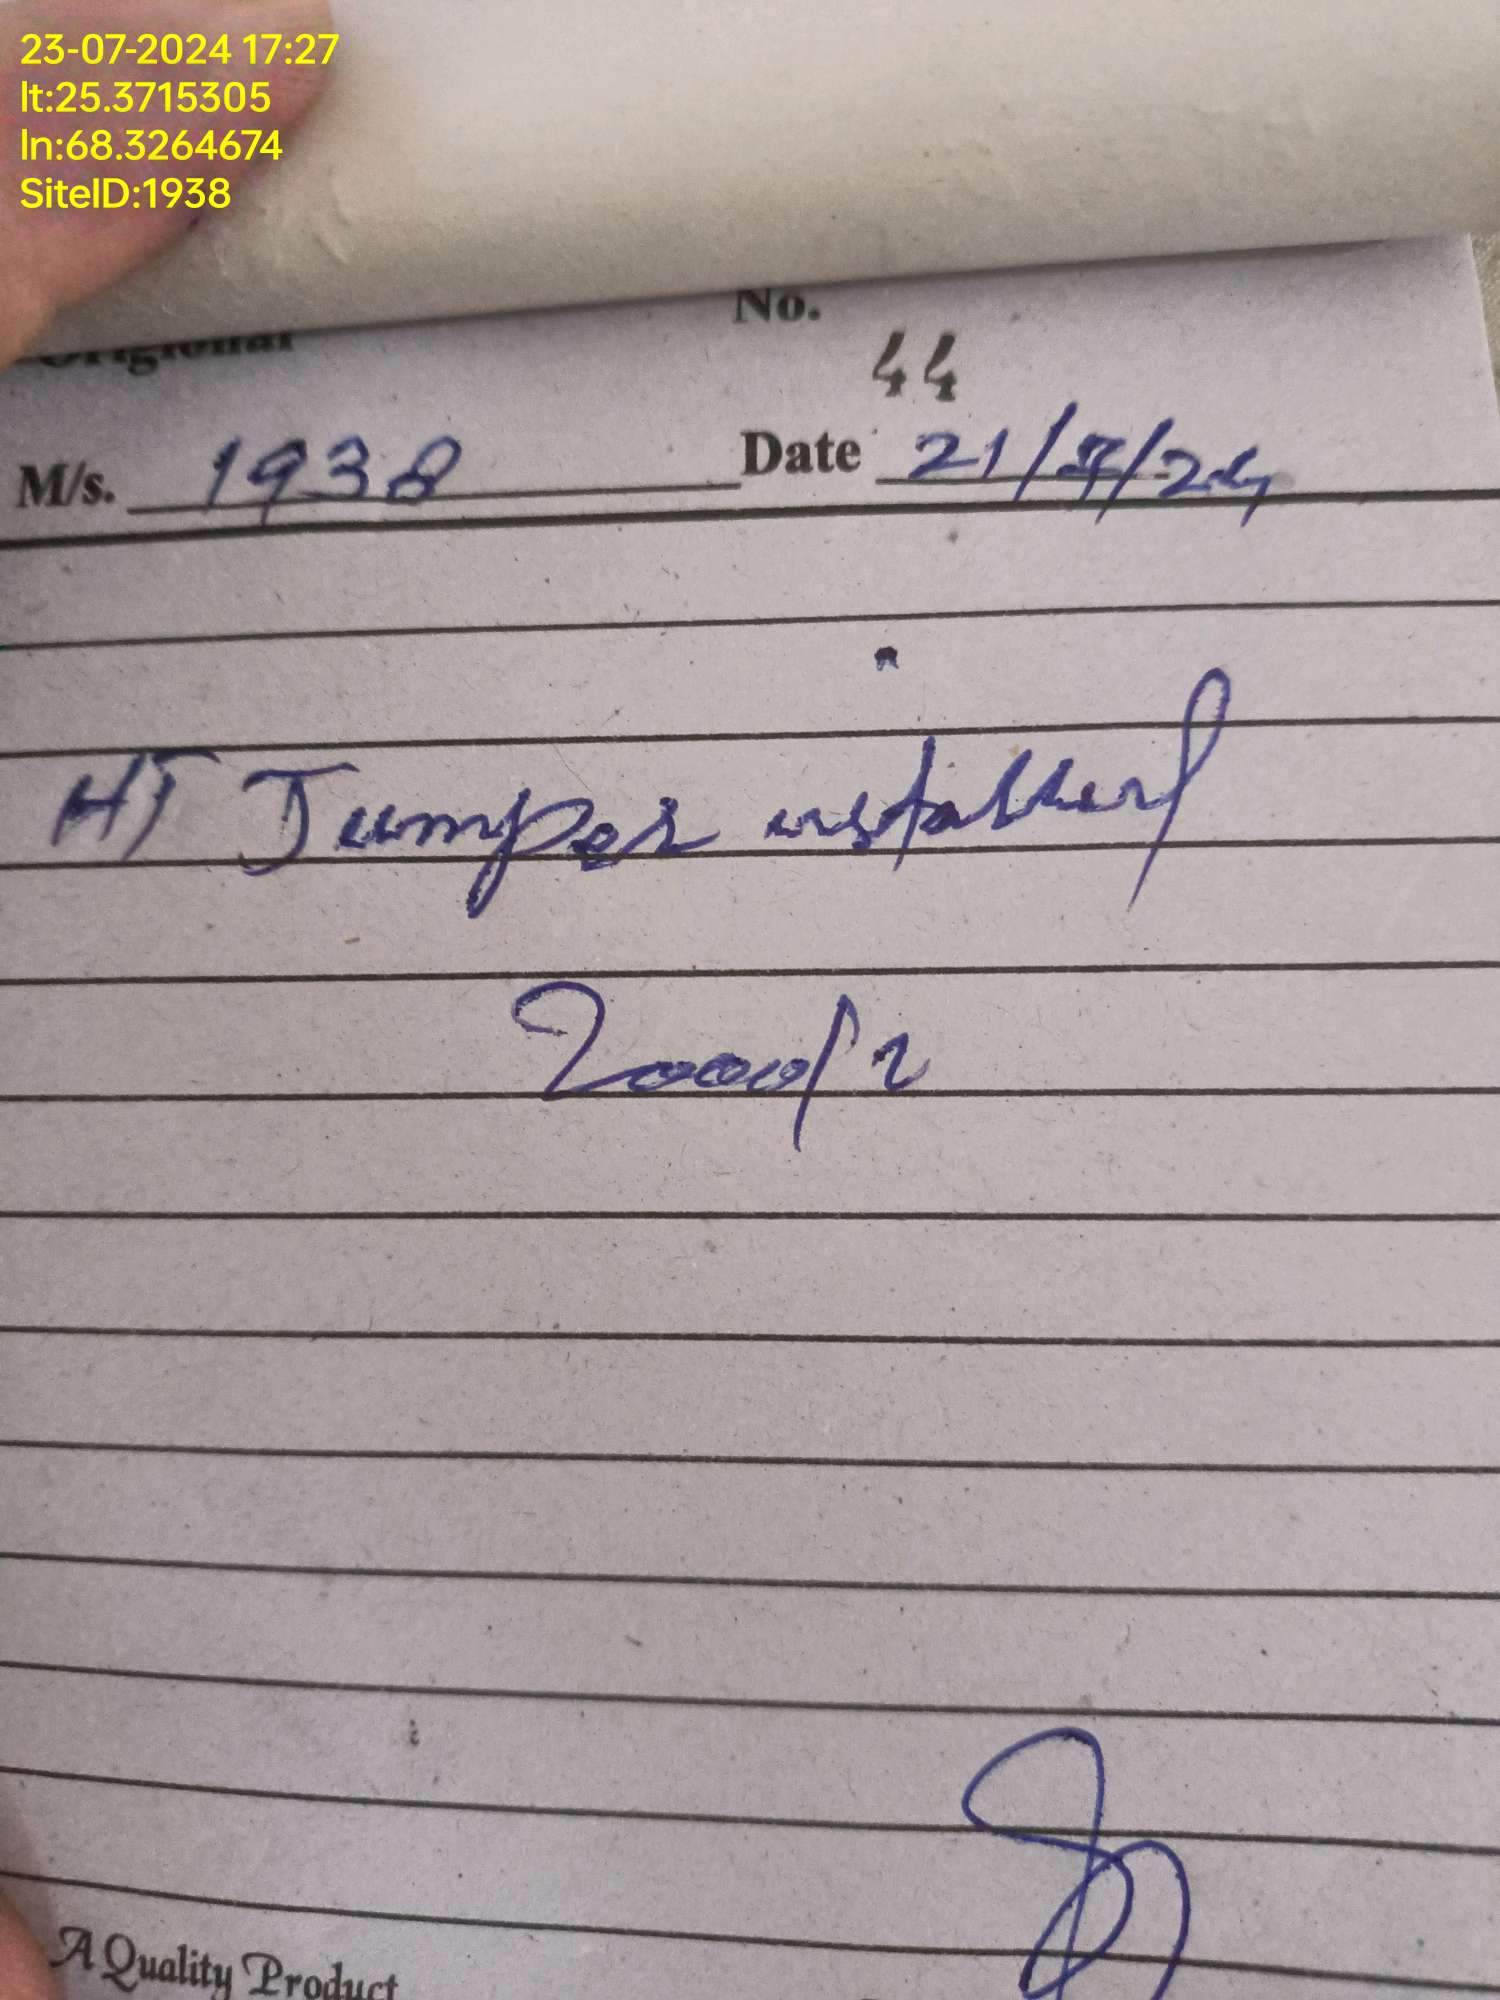 23-07-2024 17:27
lt:25.3715305
ln:68.3264674
SiteID:1938
No.
Origional
44
M/s. 1938 Date 21/7/24
HT Jumper installed
2000/2
A Quality Product